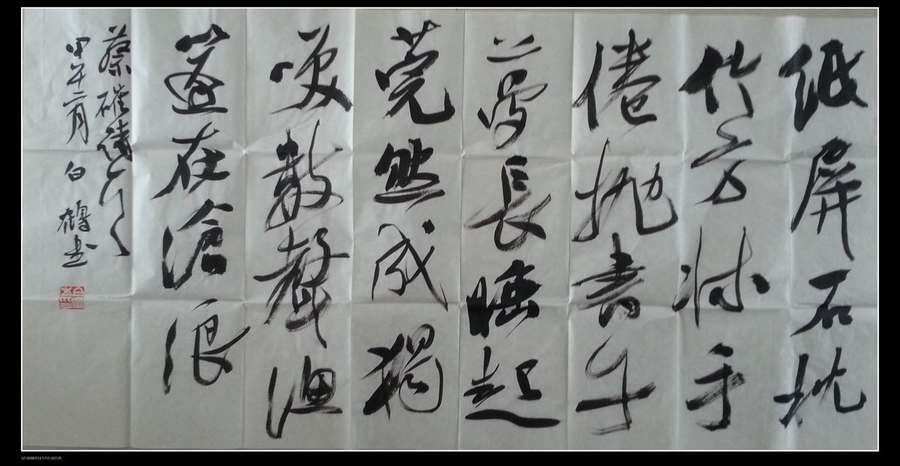 紙屏石枕
竹方牀手
倦抛書午
夢長睡起
莞然成獨
咲數聲漁
篴在滄浪
蔡確詩
甲午二月 白鶴书